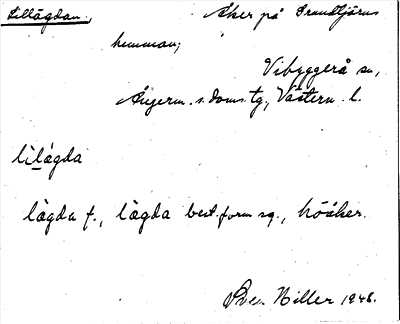 Lillågdan., Åker på Grundtjärns
hemman;
Vibyggerå sn,
Ångerm. s. doms. tg., Västern. l.
li̲lågda
lågda f., lågda best. form sg., höåker.
Niller 1946.